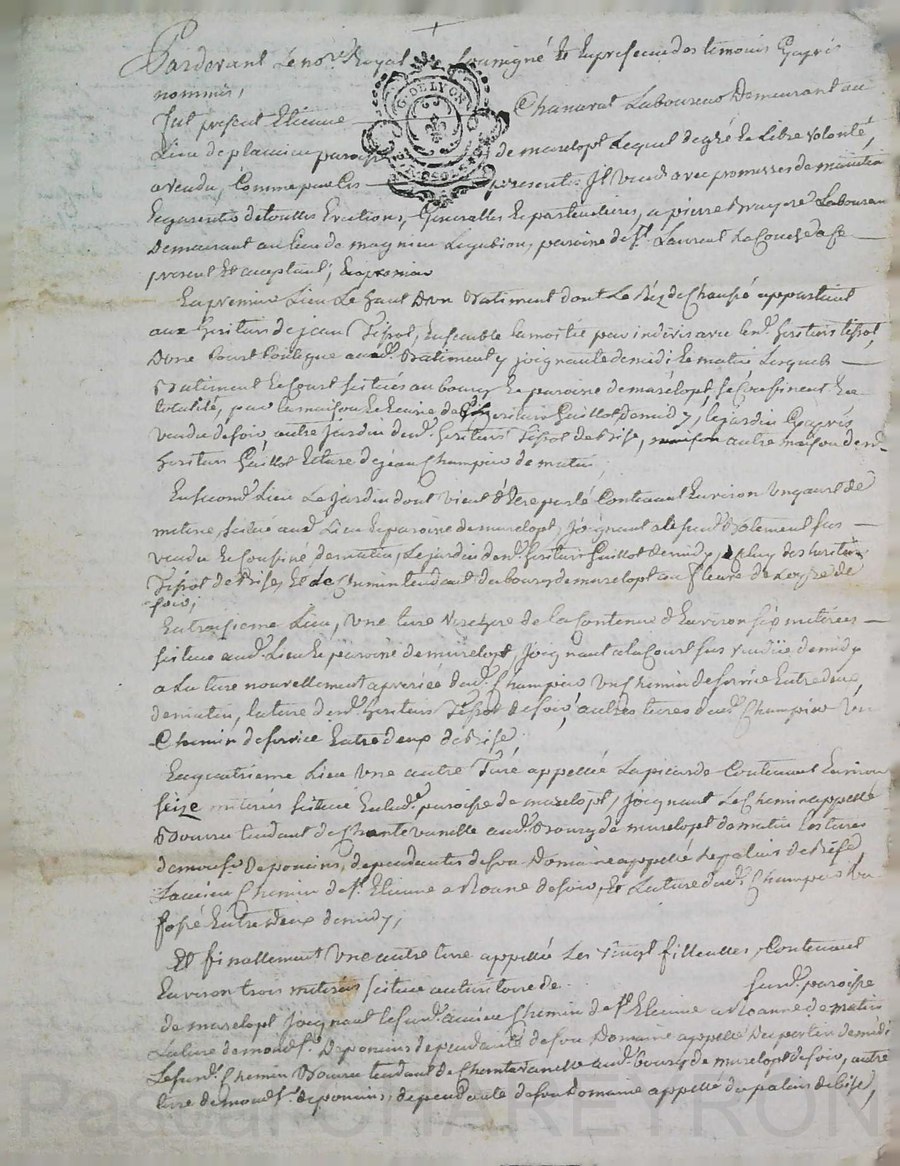 Pardevant Le nore. Royal soussigné Et En presence des temoins Cyaprés
nommés,
fut present Etienne Chanavat Laboureur Demeurant au
Lieu de plancieu paroisse de marclopt Lequel de gré Et Libre volonté,
a vendu, Comme par Ces presentes Il vend avec promesses de maintenir
Et garentir de touttes Evictions, Generalles Et particulieres, a pierre Bruyere Laboureur
Demeurant au lieu de magnieu paroisse de St. Laurent La Conche
present Et acceptant,
En premier Lieu Le haut D'un Batiment dont Le Rez de Chaussé appartient
aux heritiers de jean Tissot, Ensemble la moitié par indivis avec lesd. heritiers tissot
D'une Court Contigue aud. Batiment y joignante de midi Et matin Lesquels
Batiment Et Court scitués au bourg Et paroisse de marclopt, se Confinent En
totalité, par la maison Et Ecurie des heritiers Guillot de midy, le jardin Cyaprés
vendu de soir, autre jardin desd. heritiers Tissot de bise, autre maison desd.
heritiers Guillot Et terre de jean Champier de matin,
En second Lieu Le Jardin dont vient d'Etre parlé Contenant Environ un quart de
mitere, scitué aud. Lieu Et paroisse de marclopt, Joignant Le susd. Batiment sus
vendu Et Confiné de matin, Le jardin desd. heritiers Guillot de midy, Celuy des heritiers
Tissot de bise, Et le Chemin tendant du bourg de marclopt au fleuve de Loyre de
soir;
En troisieme Lieu, une terre de la Contenue d'Environ six miterées
scitué aud. Lieu Et paroisse de marclopt, Joignant a la Court sus vendüe de midy
a La terre nouvellement dud. Champier un Chemin de service Entre deux,
de matin, la terre desd. heritiers Tissot de soir, autres terres dud. Champier un
Chemin de service Entre deux de bise,
En quatrieme Lieu une autre Terre appellée La picarde Contenant Environ
seize miterés scitué En lad. paroisse de marclopt, Joignant Le Chemin appellé
tendant de Chantevanelle aud. Bourg de marclopt de matin Les terres
de monsr. De poncins, dependantes de son Domaine appellé Le palais de bise
L'ancien Chemin de St. Etienne a Roane de soir, Et La terre dud. Champier un
fossé Entre deux de midy,
Et finallement une autre terre appellée Les vingt filleulles, Contenant
Environ trois miterés scitué au teritoire de susd. paroisse
de marclopt Joignant Le susd. ancien Chemin de St. Etienne a Roanne de matin
La terre de mond. sr. De poncins dependante de son Domaine appellé de midi
Le susd. Chemin tendant de Chantevanelle aud. bourg de marclopt de soir, autre
terre de mond. sr. de poncins, dependante de son Domaine appellé du palais de bise,
G. DE LYON
Pascal CHAREYRON